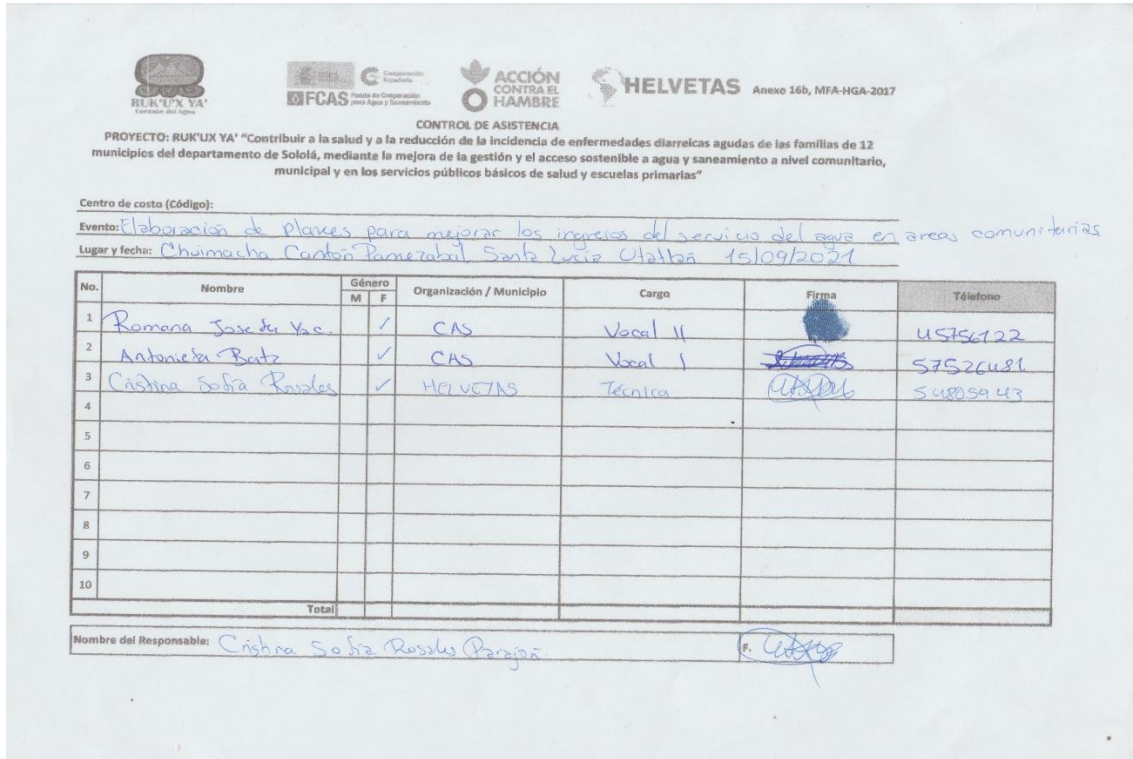 RUK'UX YA'
Corazón del Agua
Cooperación Española
FCAS Fondo de Cooperación para Agua y Saneamiento
ACCIÓN CONTRA EL HAMBRE
HELVETAS Anexo 16b, MFA-HGA-2017
CONTROL DE ASISTENCIA
PROYECTO: RUK'UX YA' "Contribuir a la salud y a la reducción de la incidencia de enfermedades diarreicas agudas de las familias de 12
municipios del departamento de Sololá, mediante la mejora de la gestión y el acceso sostenible a agua y saneamiento a nivel comunitario,
municipal y en los servicios públicos básicos de salud y escuelas primarias"
Centro de costo (Código):
Evento: Elaboración de planes para mejorar los ingresos del servicio del agua en areas comunitarias
Lugar y fecha: Chuimacha Cantón Pamezabal, Santa Lucia Utatlán 15/09/2021
No. Nombre Género Organización / Municipio Cargo Firma Télefono
M F
1 Romana Jose ✓ CAS Vocal II 45756122
2 Antonieta Batz ✓ CAS Vocal I 57526481
3 Cristina Sofía Rosales ✓ HELVETAS Técnica 54805943
4
5
6
7
8
9
10
Total
Nombre del Responsable: Cristina Sofía Rosales F.